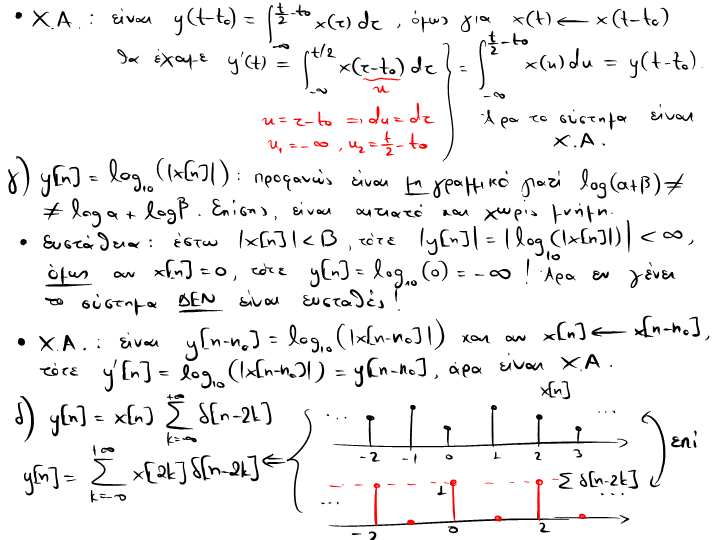 • Χ.Α.: είναι y(t-t₀) = ∫_{-∞}^{t/2-t₀} x(τ) dτ, όμως για x(t) ← x(t-t₀)
θα έχομε y'(t) = ∫_{-∞}^{t/2} x(τ-t₀) dτ } = ∫_{-∞}^{t/2-t₀} x(u) du = y(t-t₀).
u
u = τ-t₀ ⇒ du = dτ
u₁ = -∞, u₂ = t/2 - t₀
Άρα το σύστημα είναι
Χ.Α.
γ) y[n] = log₁₀(|x[n]|): προφανώς είναι μη γραμμικό γιατί log(α+β) ≠
≠ log α + log β. Επίσης, είναι αιτιατό και χωρίς μνήμη.
• Ευστάθεια: έστω |x[n]| < B, τότε |y[n]| = |log₁₀(|x[n]|)| < ∞,
όμως αν x[n] = 0, τότε y[n] = log₁₀(0) = -∞! Άρα εν γένει
το σύστημα ΔΕΝ είναι ευσταθές!
• Χ.Α.: είναι y[n-n₀] = log₁₀(|x[n-n₀]|) και αν x[n] ← x[n-n₀],
τότε y'[n] = log₁₀(|x[n-n₀]|) = y[n-n₀], άρα είναι Χ.Α.
δ) y[n] = x[n] ∑_{k=-∞}^{+∞} δ[n-2k]
y[n] = ∑_{k=-∞}^{+∞} x[2k] δ[n-2k] ⇐
x[n]
... ...
-2 -1 0 1 2 3
επί
1 ∑ δ[n-2k]
... ...
-2 0 2